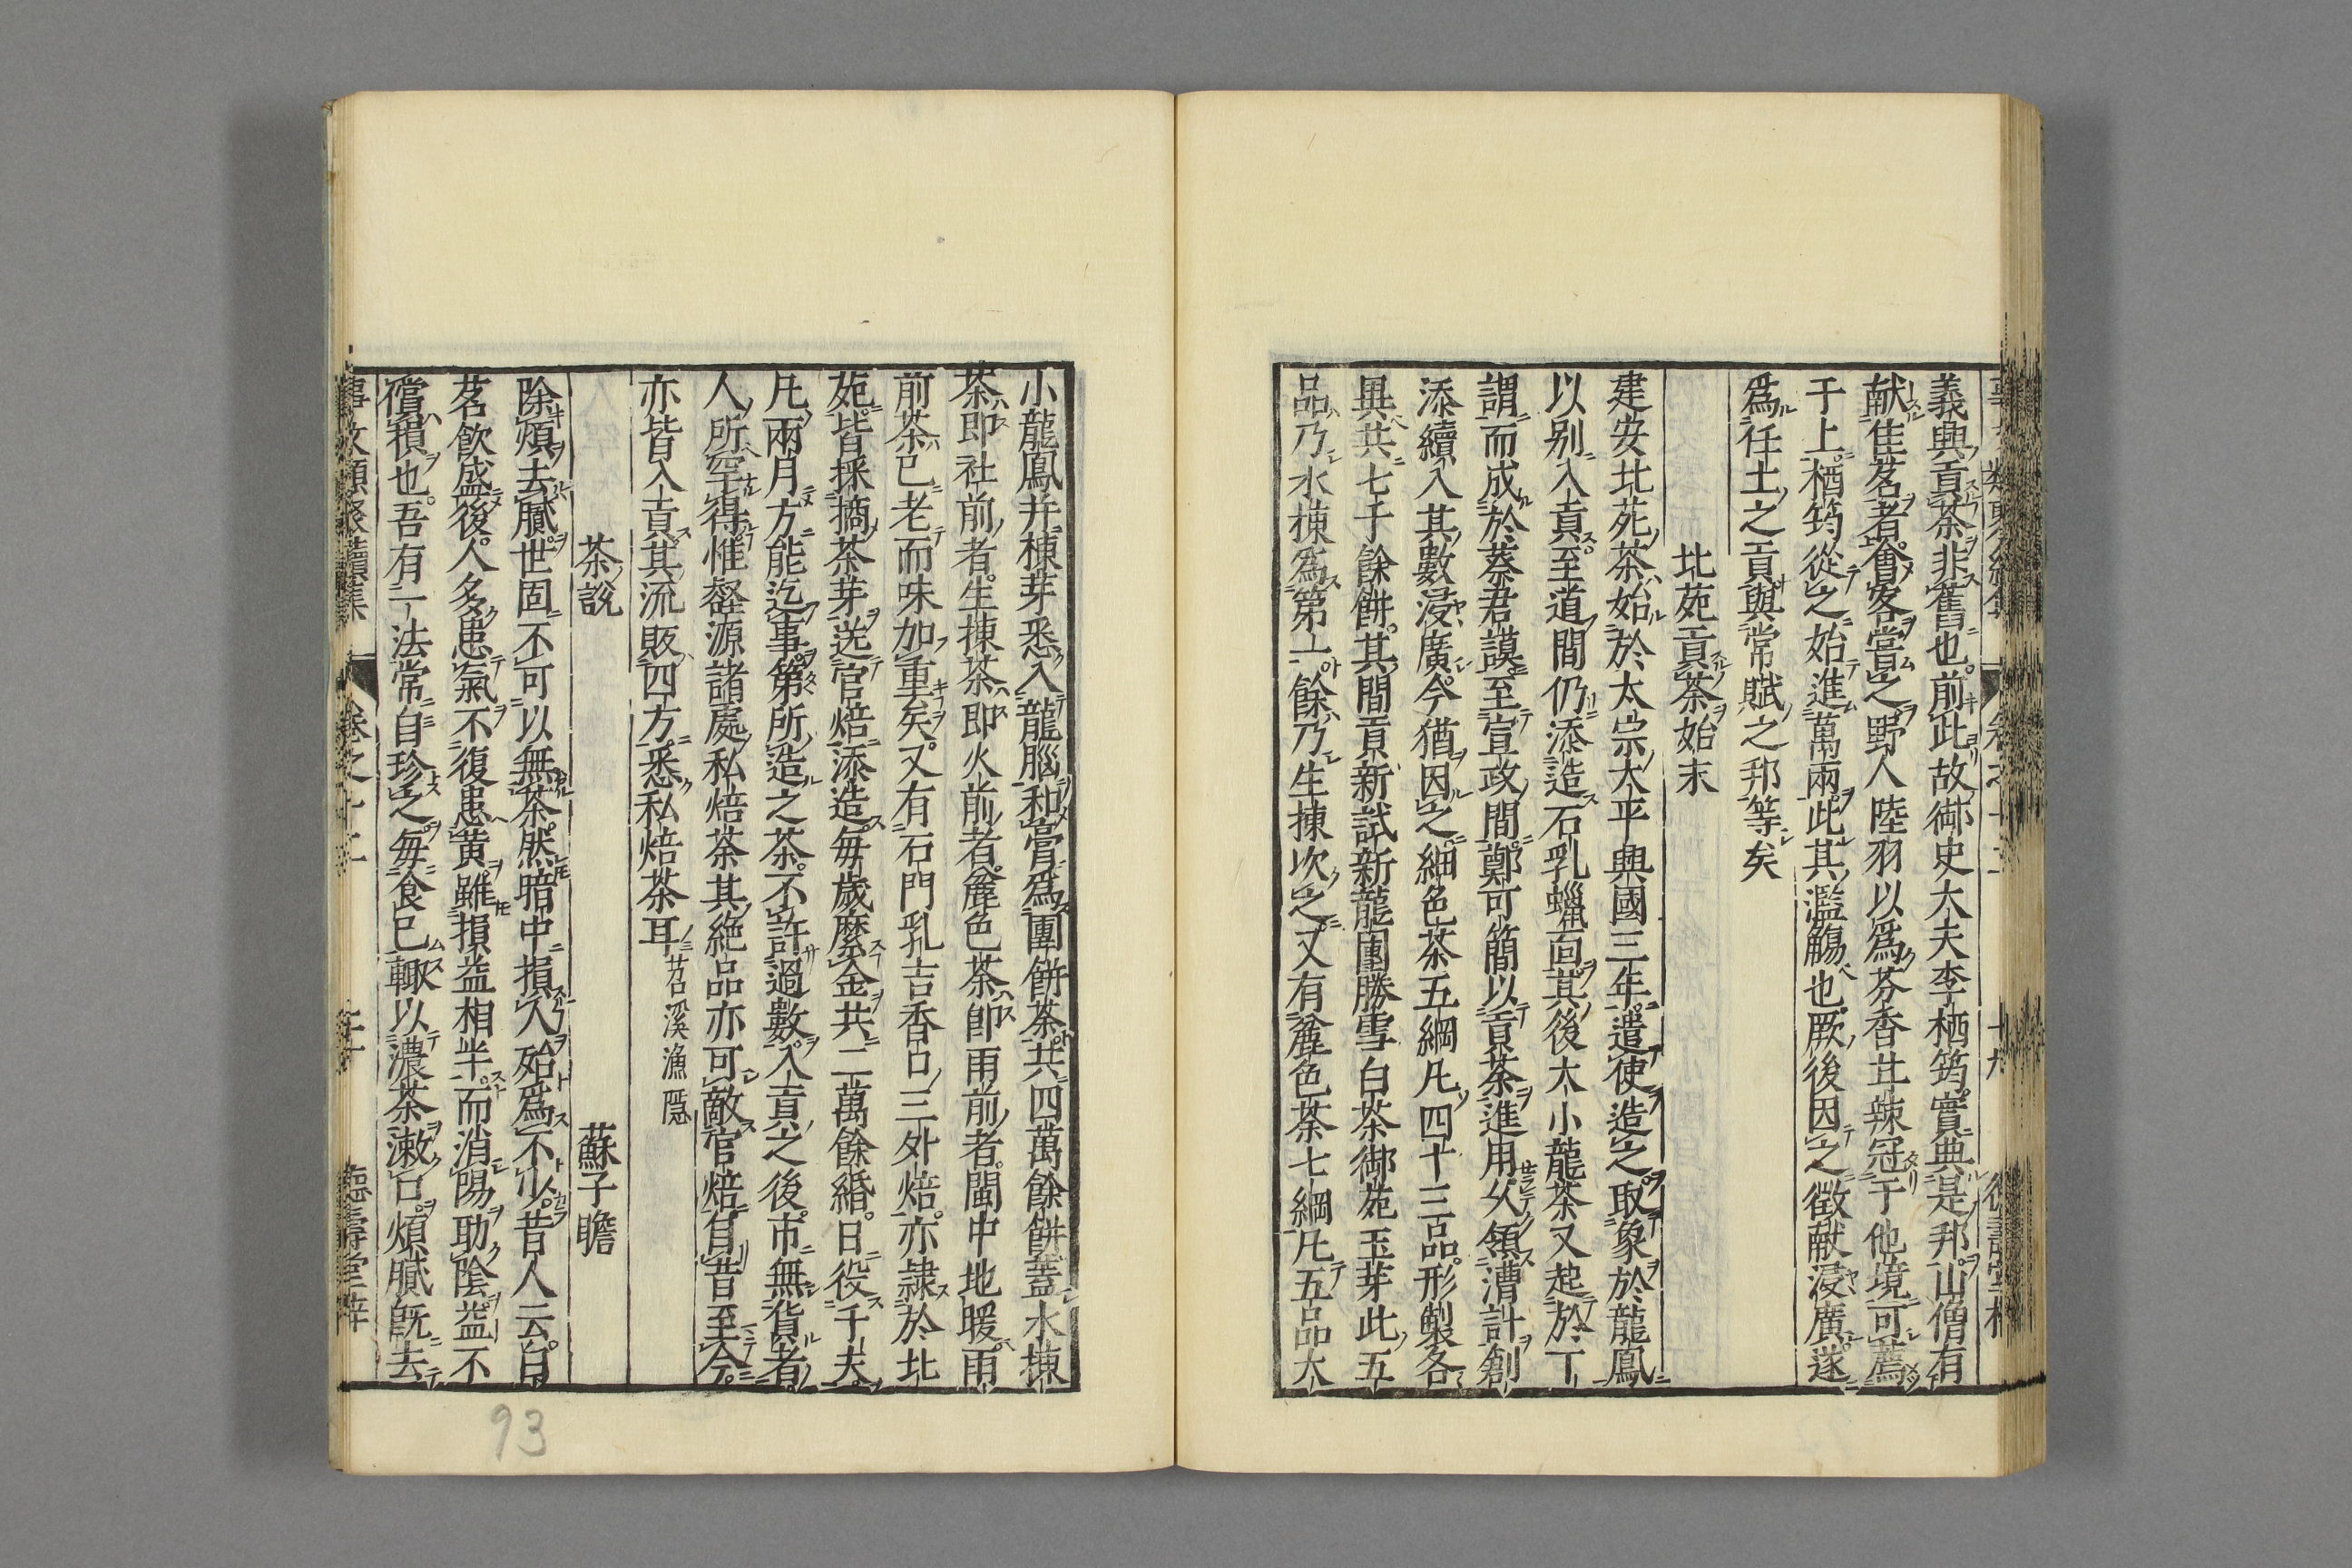 義興貢茶非舊也前此故御史大夫李栖筠實典是邦山僧有
献佳茗者會客嘗之野人陸羽以爲芬香甘辣冠于他境可薦
于上栖筠從之始進萬兩此其濫觴也厥後因之徵献浸廣遂
爲任土之貢與常賦之邦等矣
北苑貢茶始末
建安北苑茶始於太宗太平興國三年遣使造之取象於龍鳳
以别入貢至道間仍添造石乳蠟面其後大小龍茶又起於丁
謂而成於蔡君謨至宣政間鄭可簡以貢茶進用久領漕計創
添續入其數浸廣今猶因之細色茶五綱凡四十三品形製各
異共七千餘餅其間貢新試新龍團勝雪白茶御苑玉芽此五
品乃水揀爲第一餘乃生揀次之又有麄色茶七綱凡五品大
小龍鳳并揀芽悉入龍腦和膏爲團餅茶共四萬餘餅蓋水揀
茶即社前者生揀茶即火前者麄色茶即雨前者閩中地暖雨
前茶已老而味加重矣又有石門乳吉香口三外焙亦隷於北
苑皆採摘茶芽送官焙添造每歲縻金共二萬餘緡日役千夫
凡兩月方能迄事第所造之茶不許過數入貢之後市無貨者
人所罕得惟壑源諸處私焙茶其絶品亦可敵官焙自昔至今
亦皆入貢其流販四方悉私焙茶耳 苕溪漁隱
茶說 蘇子瞻
除煩去膩世固不可以無茶然暗中損人殆爲不少昔人云自
茗飲盛後人多患氣不復患黄雖損益相半而消陽助陰益不
償損也吾有一法常自珍之每食已輒以濃茶漱口煩膩既去
事文類聚續集 卷之十二 二十 德壽堂梓